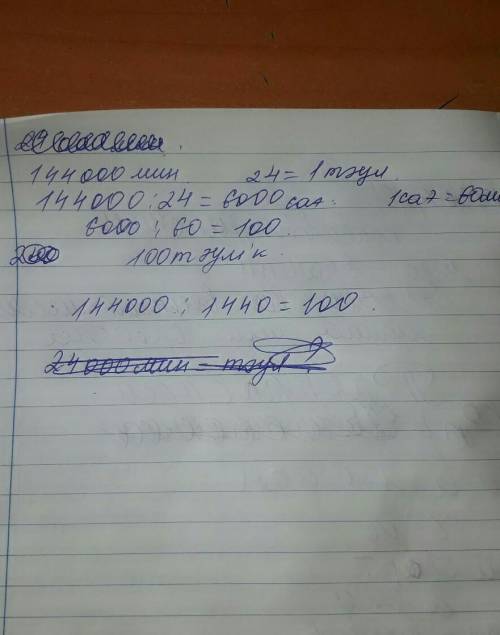 144000 мин 24 = 1 тәул.
144000 : 24 = 6000 сағ. 1 сағ = 60 ми
6000 : 60 = 100.
100 тәулік.
144000 : 1440 = 100.
24000 мин = тәул